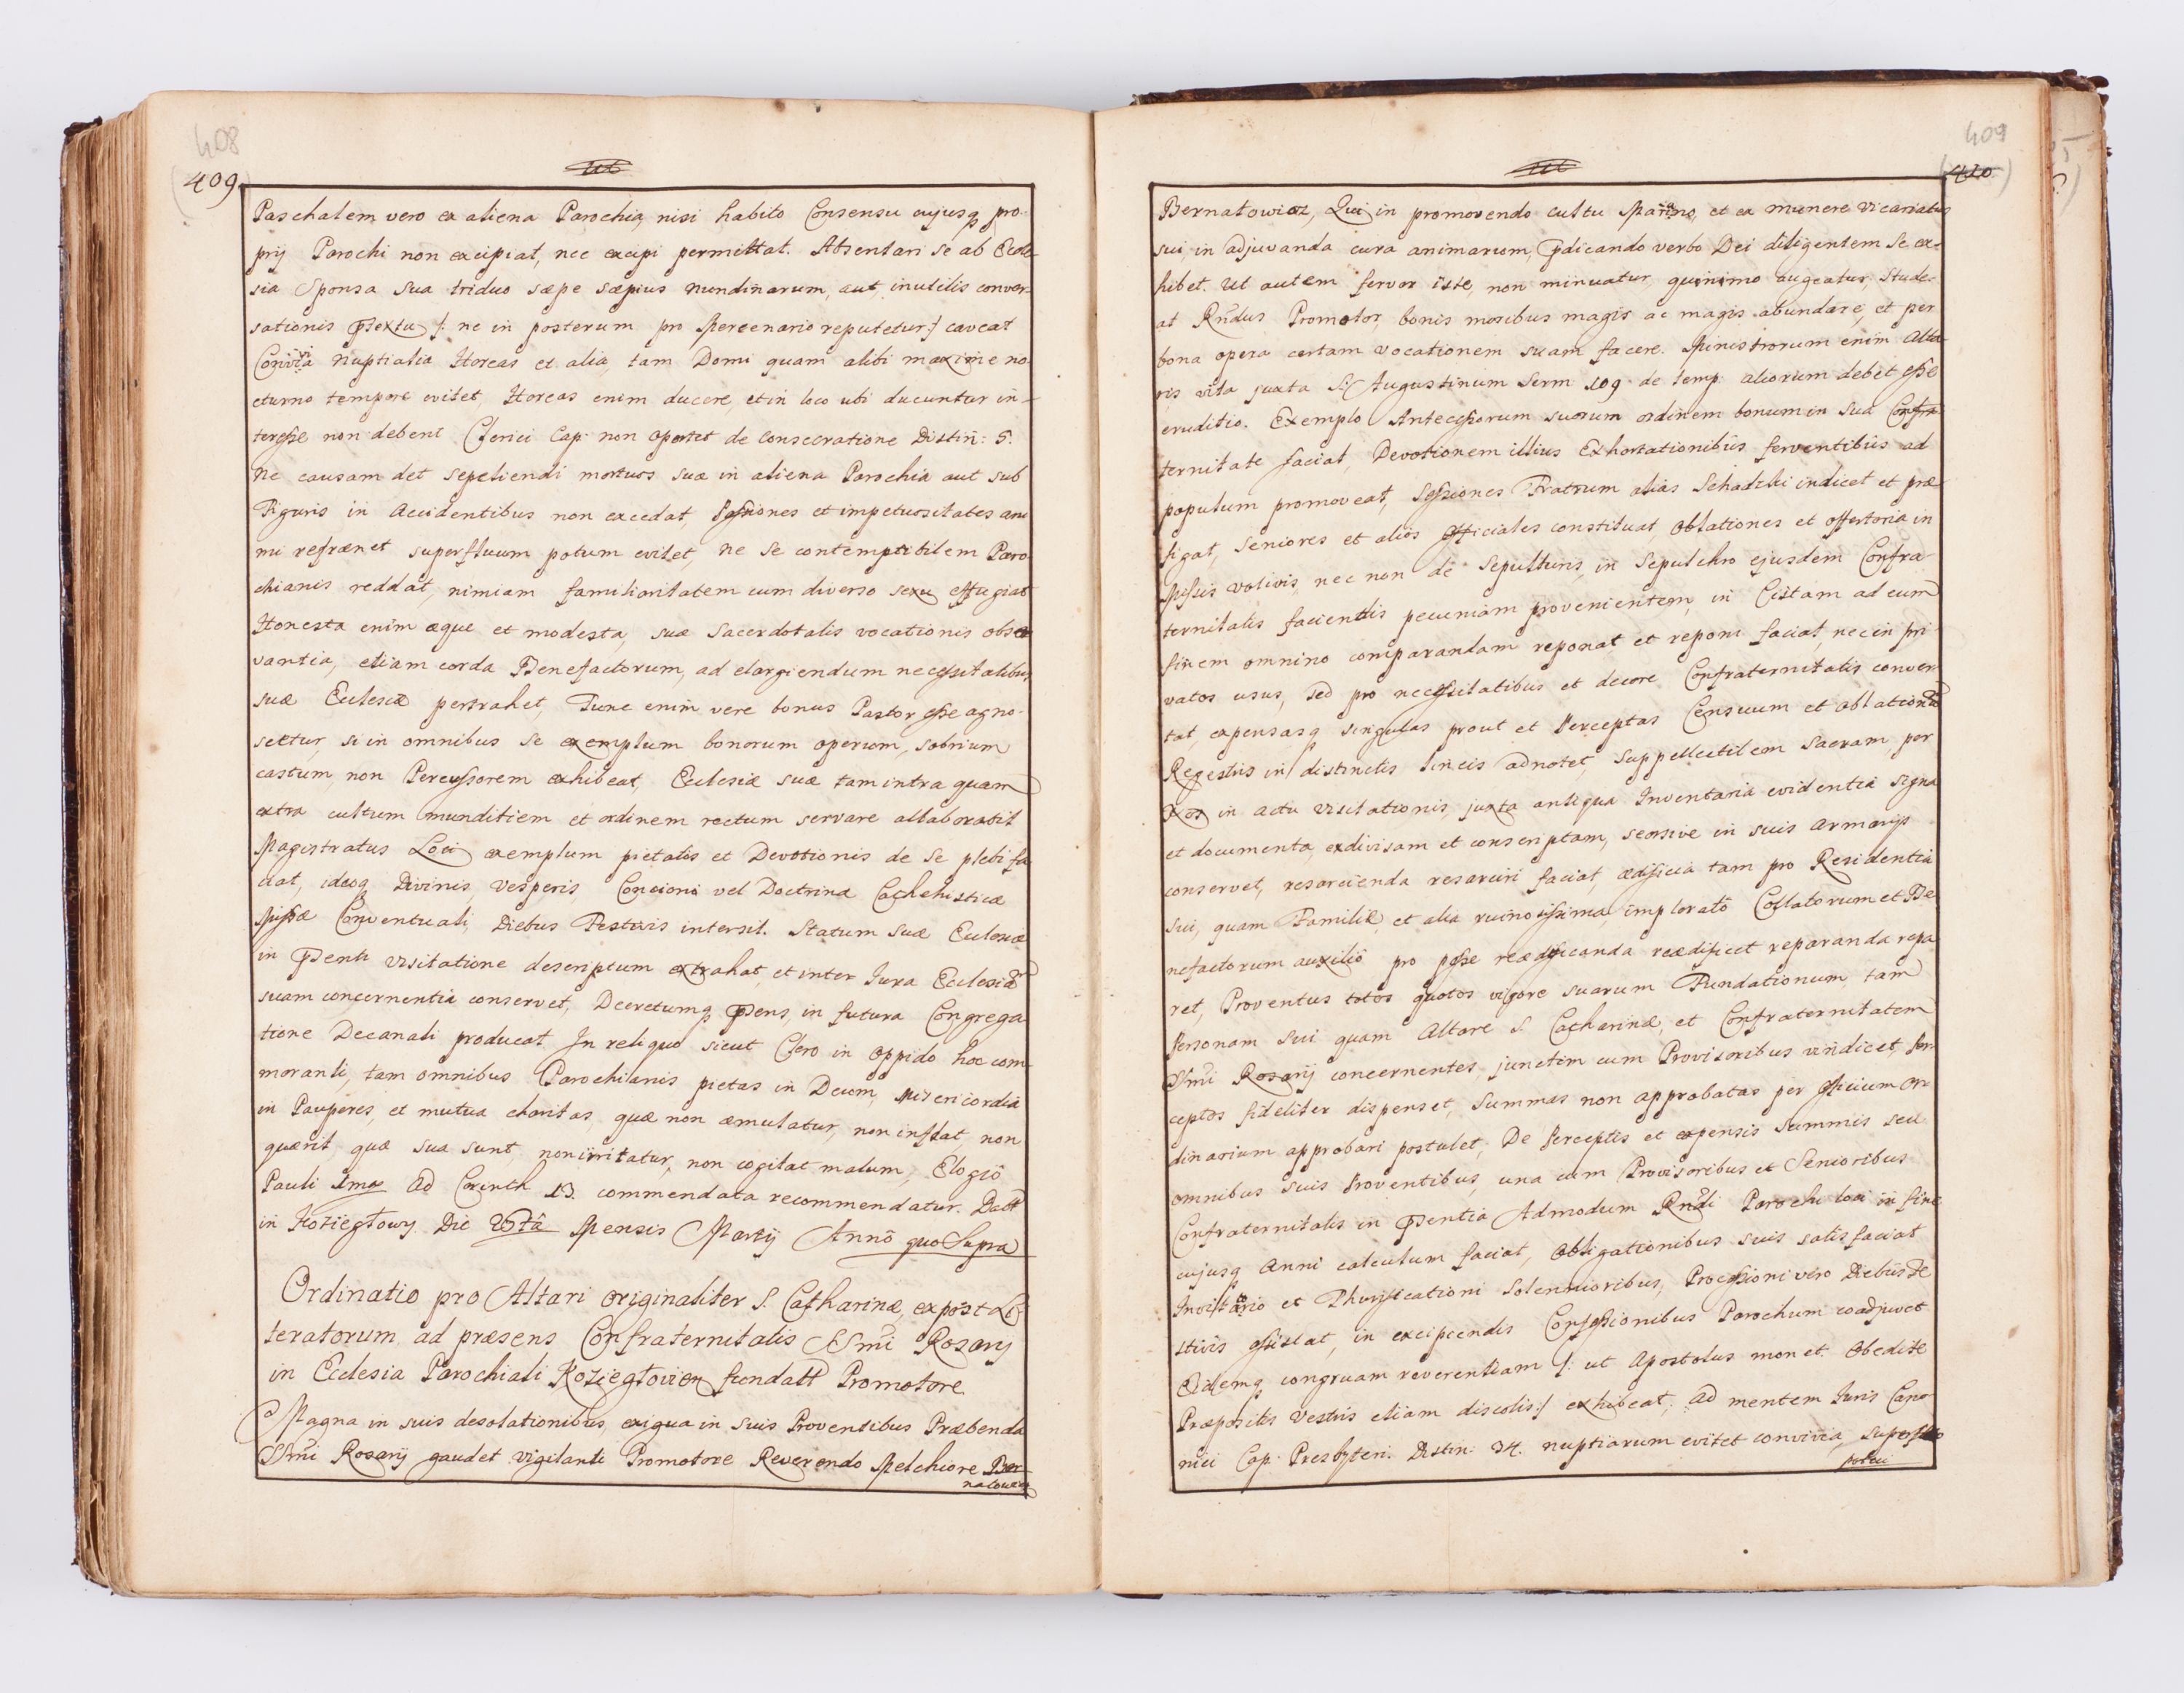 408
409
Paschalem vero ex aliena Parochia, nisi habito Consensu cujusq pro-
prij Parochi non excipiat, nec excipi permittat. Absentari se ab Eccle-
sia Sponsa sua triduo sæpe sæpius nundinarum, aut inutilis conver-
sationis p̄textu /: ne in posterum pro Mercenario reputetur :/ caveat
Convivia Nuptialia Horeas et alia, tam Domi quam alibi maxime no-
cturno tempore evitet, Horeas enim ducere, et in loco ubi ducuntur in-
teresse non debent Clerici Cap: non oportet de Consecratione Distin̄: 5.
Ne causam det sepeliendi mortuos suæ in aliena Parochia aut sub
Figuris in Accidentibus non excedat, Passiones et impetuositates ani
mi refrænet superfluum potum evitet, ne se contemptibilem Paro
chianis reddat, nimiam familiaritatem cum diverso sexu effugiat
Honesta enim æque et modesta, suæ Sacerdotalis vocationis obser
vantia, etiam corda Benefactorum, ad elargiendum necessitatibus
suæ Ecclesiæ pertrahet, Tunc enim vere bonus Pastor esse agno-
scetur, si in omnibus se exemplum bonorum operum, sobrium
castum, non Percussorem exhibeat, Ecclesiæ suæ tam intra quam
extra cultum munditiem et ordinem rectum servare allaborabit
Magistratus Loci exemplum pietatis et Devotionis de se plebi fa
ciat, ideoq Divinis, Vesperis, Concioni vel Doctrinæ Cathehisticæ
Missæ Conventuali, Diebus Festivis intersit. Statum suæ Ecclesiæ
in p̄senti visitatione descriptum extrahat, et inter Jura Ecclesiæ
suam concernentia conservet, Decretumq p̄sens, in futura Congrega
tione Decanali producat. In reliquo sicut Clero in oppido hoc com
moranti, tam omnibus Parochianis pietas in Deum, Misericordia
in Pauperes, et mutua charitas, quæ non æmulatur, non inflat, non
quærit, quæ sua sunt, non irritatur, non cogitat malum, Elogiô
Pauli 1mæ ad Corinth 13. commendata recommendatur. Datt
in Koziegłowy Die Mensis Martij Annô quo Supra
Ordinatio pro Altari originaliter S. Catharinæ, ex post Lit
teratorum ad præsens Confraternitatis SSmi Rosarij
in Ecclesia Parochiali Koziegłovien fundatt Promotore
Magna in suis desolationibus, exigua in suis Proventibus Præbenda
SSmi Rosarij gaudet vigilanti Promotore Reverendo Melchiore Ber-
natowicz
409
410
Bernatowicz, Qui in promovendo cultu Mariano, et ex munere Vicariatus
sui in adjuvanda cura animarum, p̄dicando verbo Dei diligentem se ex-
hibet. Ut autem fervor iste, non minuatur, quinimo augeatur, stude-
at Rndus Promotor, bonis moribus magis ac magis abundare, et per
bona opera certam vocationem suam facere. Ministrorum enim Alta-
ris vita juxta S. Augustinum Serm 109. de temp: aliorum debet esse
eruditio. Exemplo Antecessorum suorum ordinem bonum in sua Confra-
ternitate faciat, Devotionem illius Exhortationibus ferventibus ad
populum promoveat, Sessiones Fratrum alias Schadzki indicet et præ-
figat, Seniores et aliòs Officiales constituat, Oblationes et offertoria in
Missis votivis, nec non de Sepulturis, in Sepulchro ejusdem Confra-
ternitatis faciendis pecuniam provenientem, in Cistam ad eum
finem omnino comparandam reponat et reponi faciat, nec in pri-
vatos usus, sed pro necessitatibus et decore Confraternitatis conver-
tat, expensasq singulas prout et Perceptas Censuum et oblationū
Regestris in distinctis lineis adnotet, Suppellectilem Sacram per
Nos in actu visitationis, juxta antiqua Inventaria evidentia signa
et documenta, exdivisam et conscriptam, seorsive in suis armarijs
conservet, resarcienda resarciri faciat, ædificia tam pro Residentia
sui, quam Familiæ, et alia ruinosissima, implorato Collatorum et Be
nefactorum auxiliô pro posse reædificanda reædificet, reparanda repa
ret, Proventus totos quotos vigore suarum Fundationum, tam
Personam sui quam Altare S. Catharinæ, et Confraternitatem
SSmi Rosarij concernentes, junctim cum Provisoribus vindicet, Per-
ceptos fideliter dispenset, Summas non approbatas per Officium Or-
dinarium approbari postulet, De Perceptis et expensis Summis seu
omnibus suis Proventibus, una cum Provisoribus et Senioribus
Confraternitatis in p̄sentia Admodum Rndi Parochi loci in fine
cujusq Anni calculum faciat, Obligationibus suis satisfaciat
Invitatorio et Thurificationi Solennioribus, Processioni vero Diebus Fe
stivis assistat, in excipiendis Confessionibus Parochum coadjuvet
Eidemq congruam reverentiam /: ut Apostolus monet. Obedite
Præpositis Vestris etiam discolis :/ exhibeat; ad mentem Juris Cano
nici Cap: Presbyteri. Distin: 34. nuptiarum evitet convivia, superflui
potus